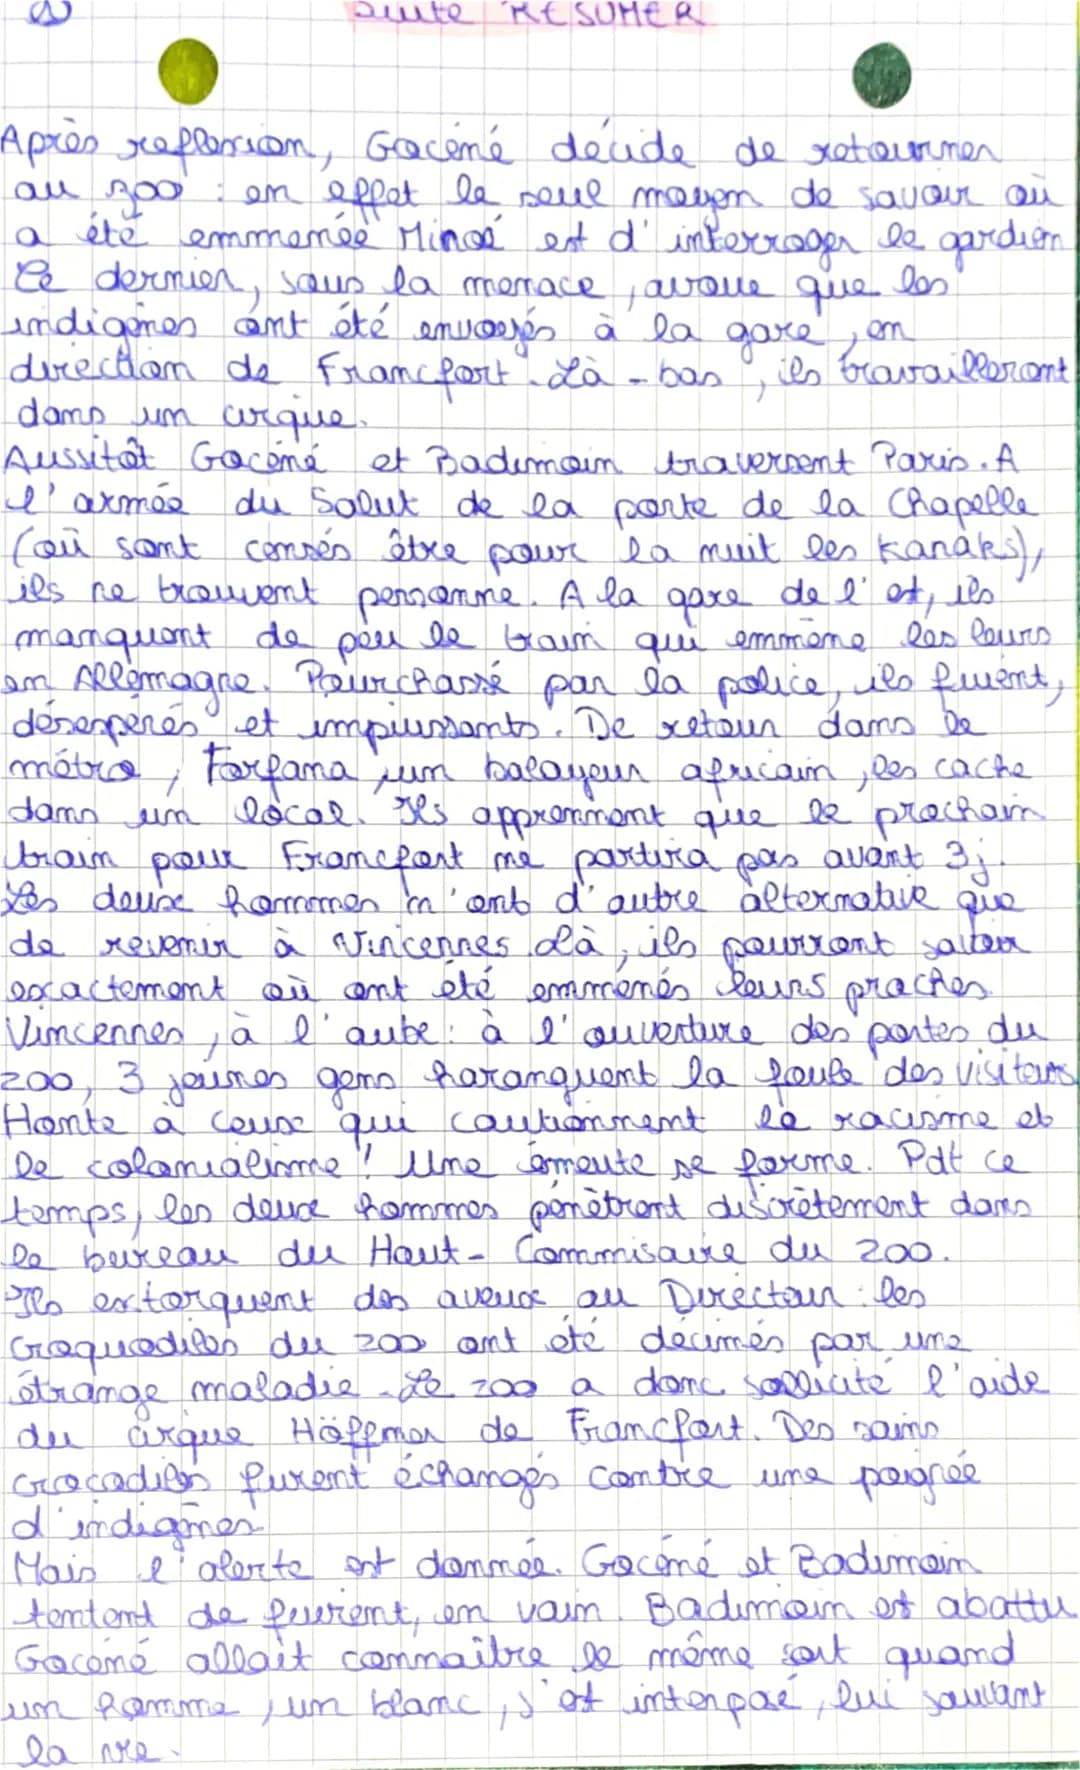 suite RESUMER
Après reflexion, Gocéné décide de retourner
au zoo : en effet le seul moyen de savoir où
a été emmenée Minoé est d'interroger le gardien
Ce dernier, sous la menace, avoue que les
indigènes ont été envoyés à la gare, en
direction de Francfort. Là-bas, ils travailleront
dans un cirque.
Aussitôt Gocéné et Badimoin traversent Paris. A
l'armée du Salut de la porte de la Chapelle
(où sont censés être pour la nuit les Kanaks),
ils ne trouvent personne. A la gare de l'est, ils
manquent de peu le train qui emmène les leurs
en Allemagne. Pourchassé par la police, ils fuient,
désespérés et impuissants. De retour dans le
métro, Fofana, un balayeur africain, les cache
dans un local. Ils apprennent que le prochain
train pour Francfort ne partira pas avant 3j.
Les deux hommes n'ont d'autre alternative que
de revenir à Vincennes. Là, ils pourront savoir
exactement où ont été emmenés leurs proches.
Vincennes, à l'aube : à l'ouverture des portes du
zoo, 3 jeunes gens haranguent la foule des visiteurs
Honte à ceux qui cautionnent le racisme et
le colonialisme ! Une émeute se forme. Pdt ce
temps, les deux hommes pénètrent discrètement dans
le bureau du Haut-Commisaire du zoo.
Ils extorquent des aveux au Directeur : les
croquodiles du zoo ont été décimés par une
étrange maladie. Le zoo a donc sollicité l'aide
du cirque Höffner de Francfort. Des sains
crocodiles furent échangés contre une poignée
d'indigènes
Mais l'alerte est donnée. Gocéné et Badimoin
tentent de fuirent, en vain. Badimoin est abattu
Gocéné allait connaître le même sort quand
un homme, un blanc, s'est interposé, lui sauvant
la vie.